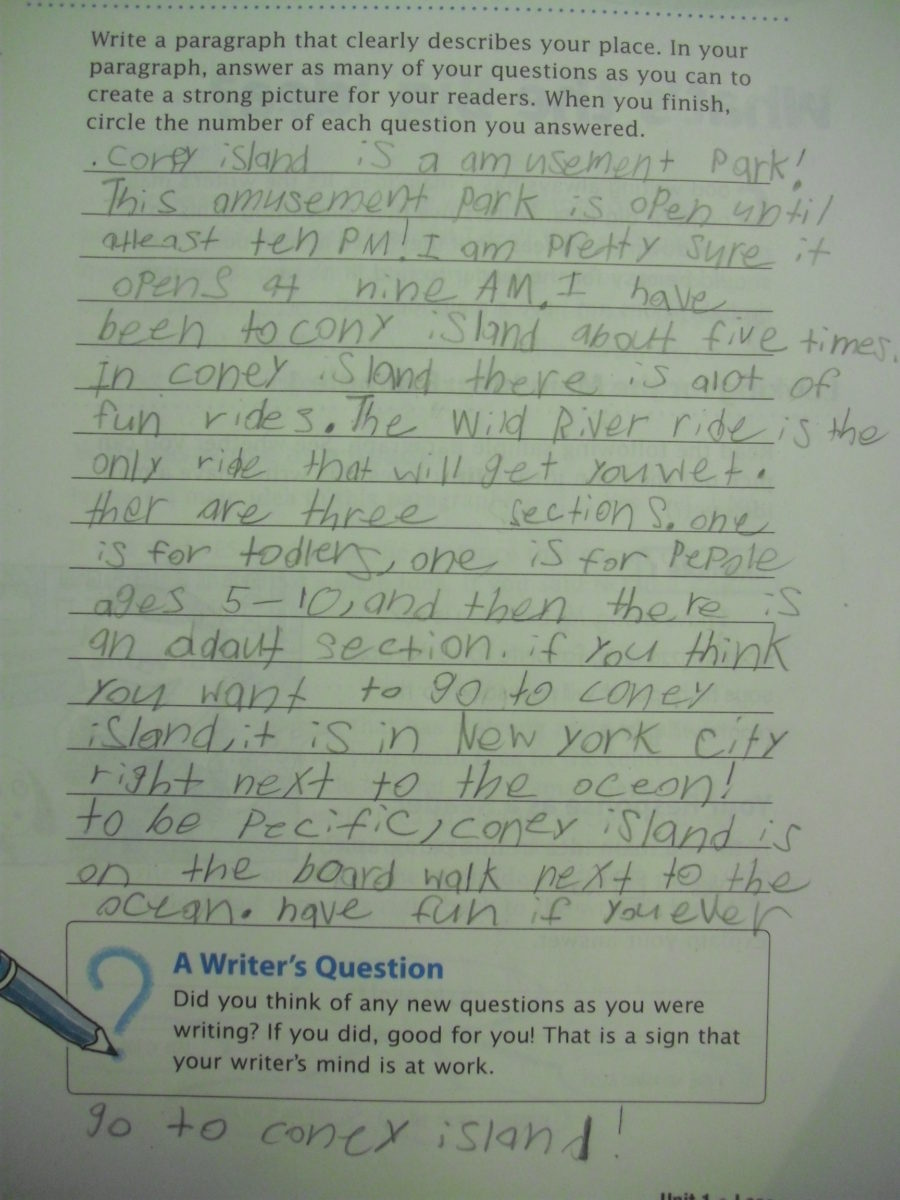 Write a paragraph that clearly describes your place. In your
paragraph, answer as many of your questions as you can to
create a strong picture for your readers. When you finish,
circle the number of each question you answered.
. Coney island is a amusement Park!
This amusement Park is open until
atleast ten PM! I am pretty sure it
opens at nine AM. I have
been to cony island about five times.
In coney island there is alot of
fun rides. The Wild River ride is the
only ride that will get you wet.
ther are three sections. one
is for todlers, one is for Pepple
ages 5-10, and then there is
an adault section. if you think
you want to go to coney
island, it is in New york City
right next to the oceon!
to be Pecific, coney island is
on the board walk next to the
ocean. have fun if you ever
A Writer's Question
Did you think of any new questions as you were
writing? If you did, good for you! That is a sign that
your writer's mind is at work.
go to coney island!